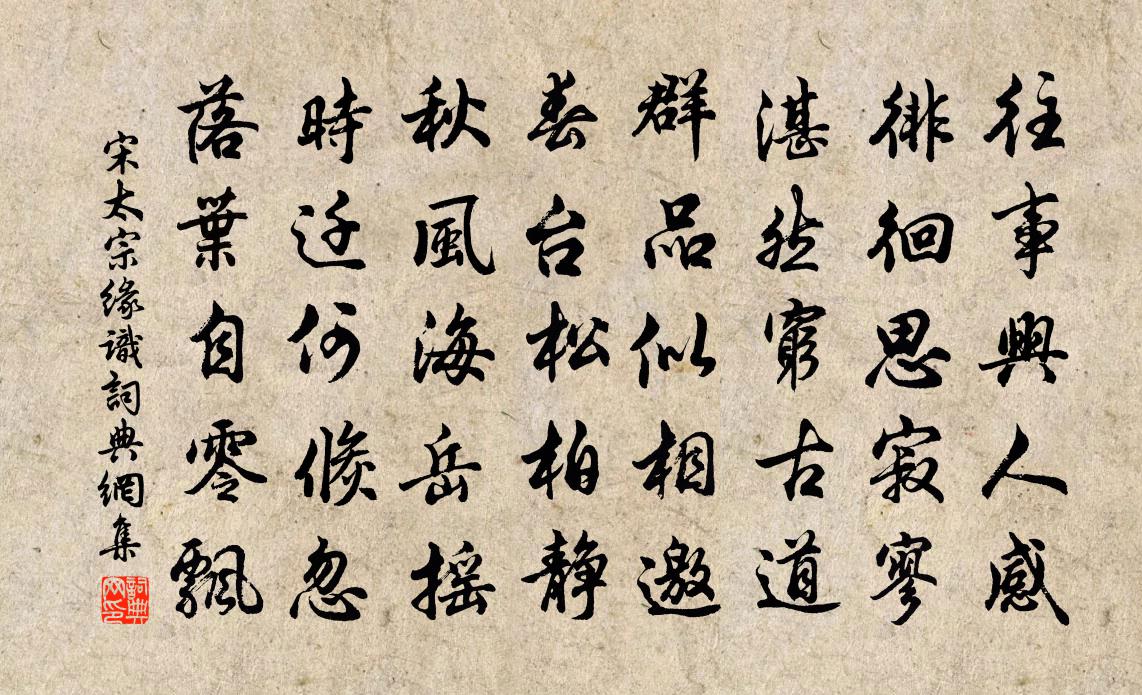 往事興人感
徘徊思寂寥
湛然窮古道
群品似相邀
春台松柏靜
秋風海岳搖
時迁何倏忽
落葉自零飄
宋太宗緣識詞典網集
詞典
网印